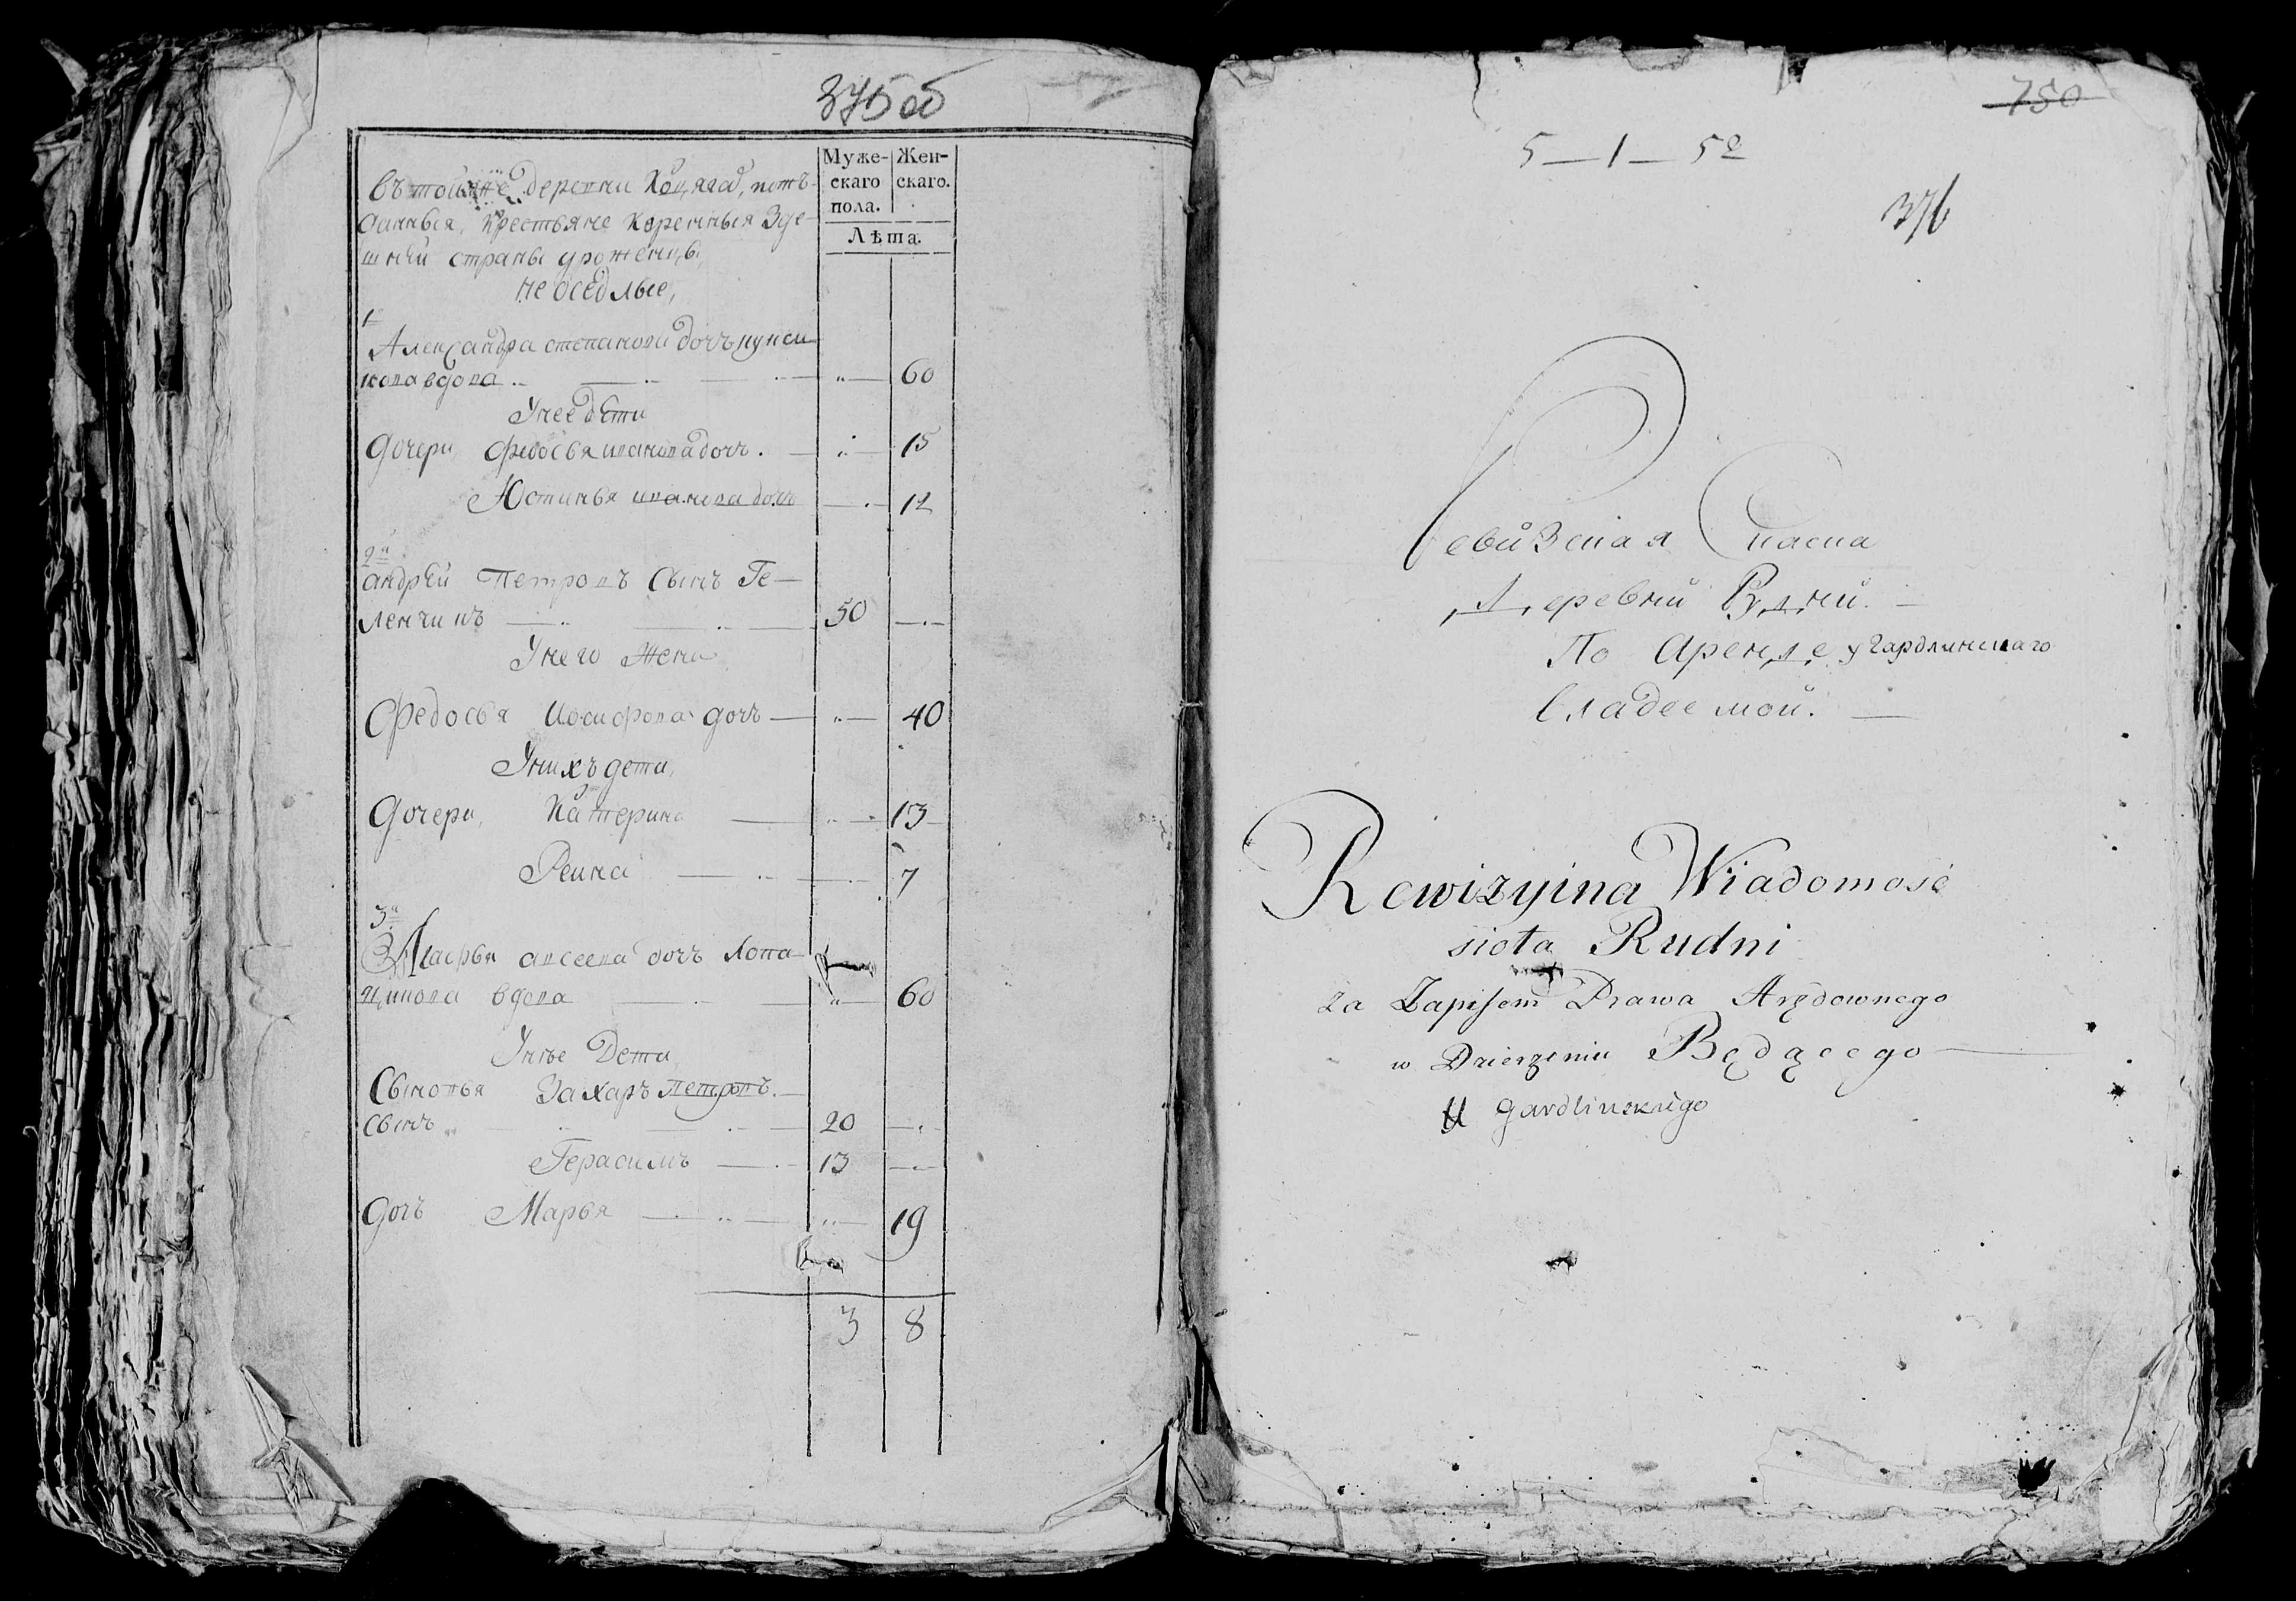 375 об
Муже- Жен-
скаго скаго.
пола.
Лѣта.
въ той же деревни
данныя, крестьяне коренныя зде-
шнѣй страны уроженцы,
не оседлые,
1
Александра степанова дочъ
вдова 60
У нее дѣти
дочери Федосья иванова дочъ. 15
Юстинья иванова дочъ 12
2
андрѣй Петровъ сынъ Ге-
ленчикъ 50
У него жена
Федосья Иосифова дочъ 40
У нихъ дети,
дочери, Катерина 13
Реина 7
3
Агафья авсеева дочъ Лопа-
цикова вдова 60
У нее Дети,
Сыновья Захаръ петровъ.
сынъ 20
Герасимъ 13
дочъ Марья 19
3 8
750
5 — 1 — 52
376
Ревизская Скаска
Деревни Рудни.
По Аренде у Гардлинскаго
владеемой.
Rewizyina Wiadomosc
siota Rudni
za Zapisem Prawa Arędownego
w Dzierżeniu Będącego
U Gardlinskiego